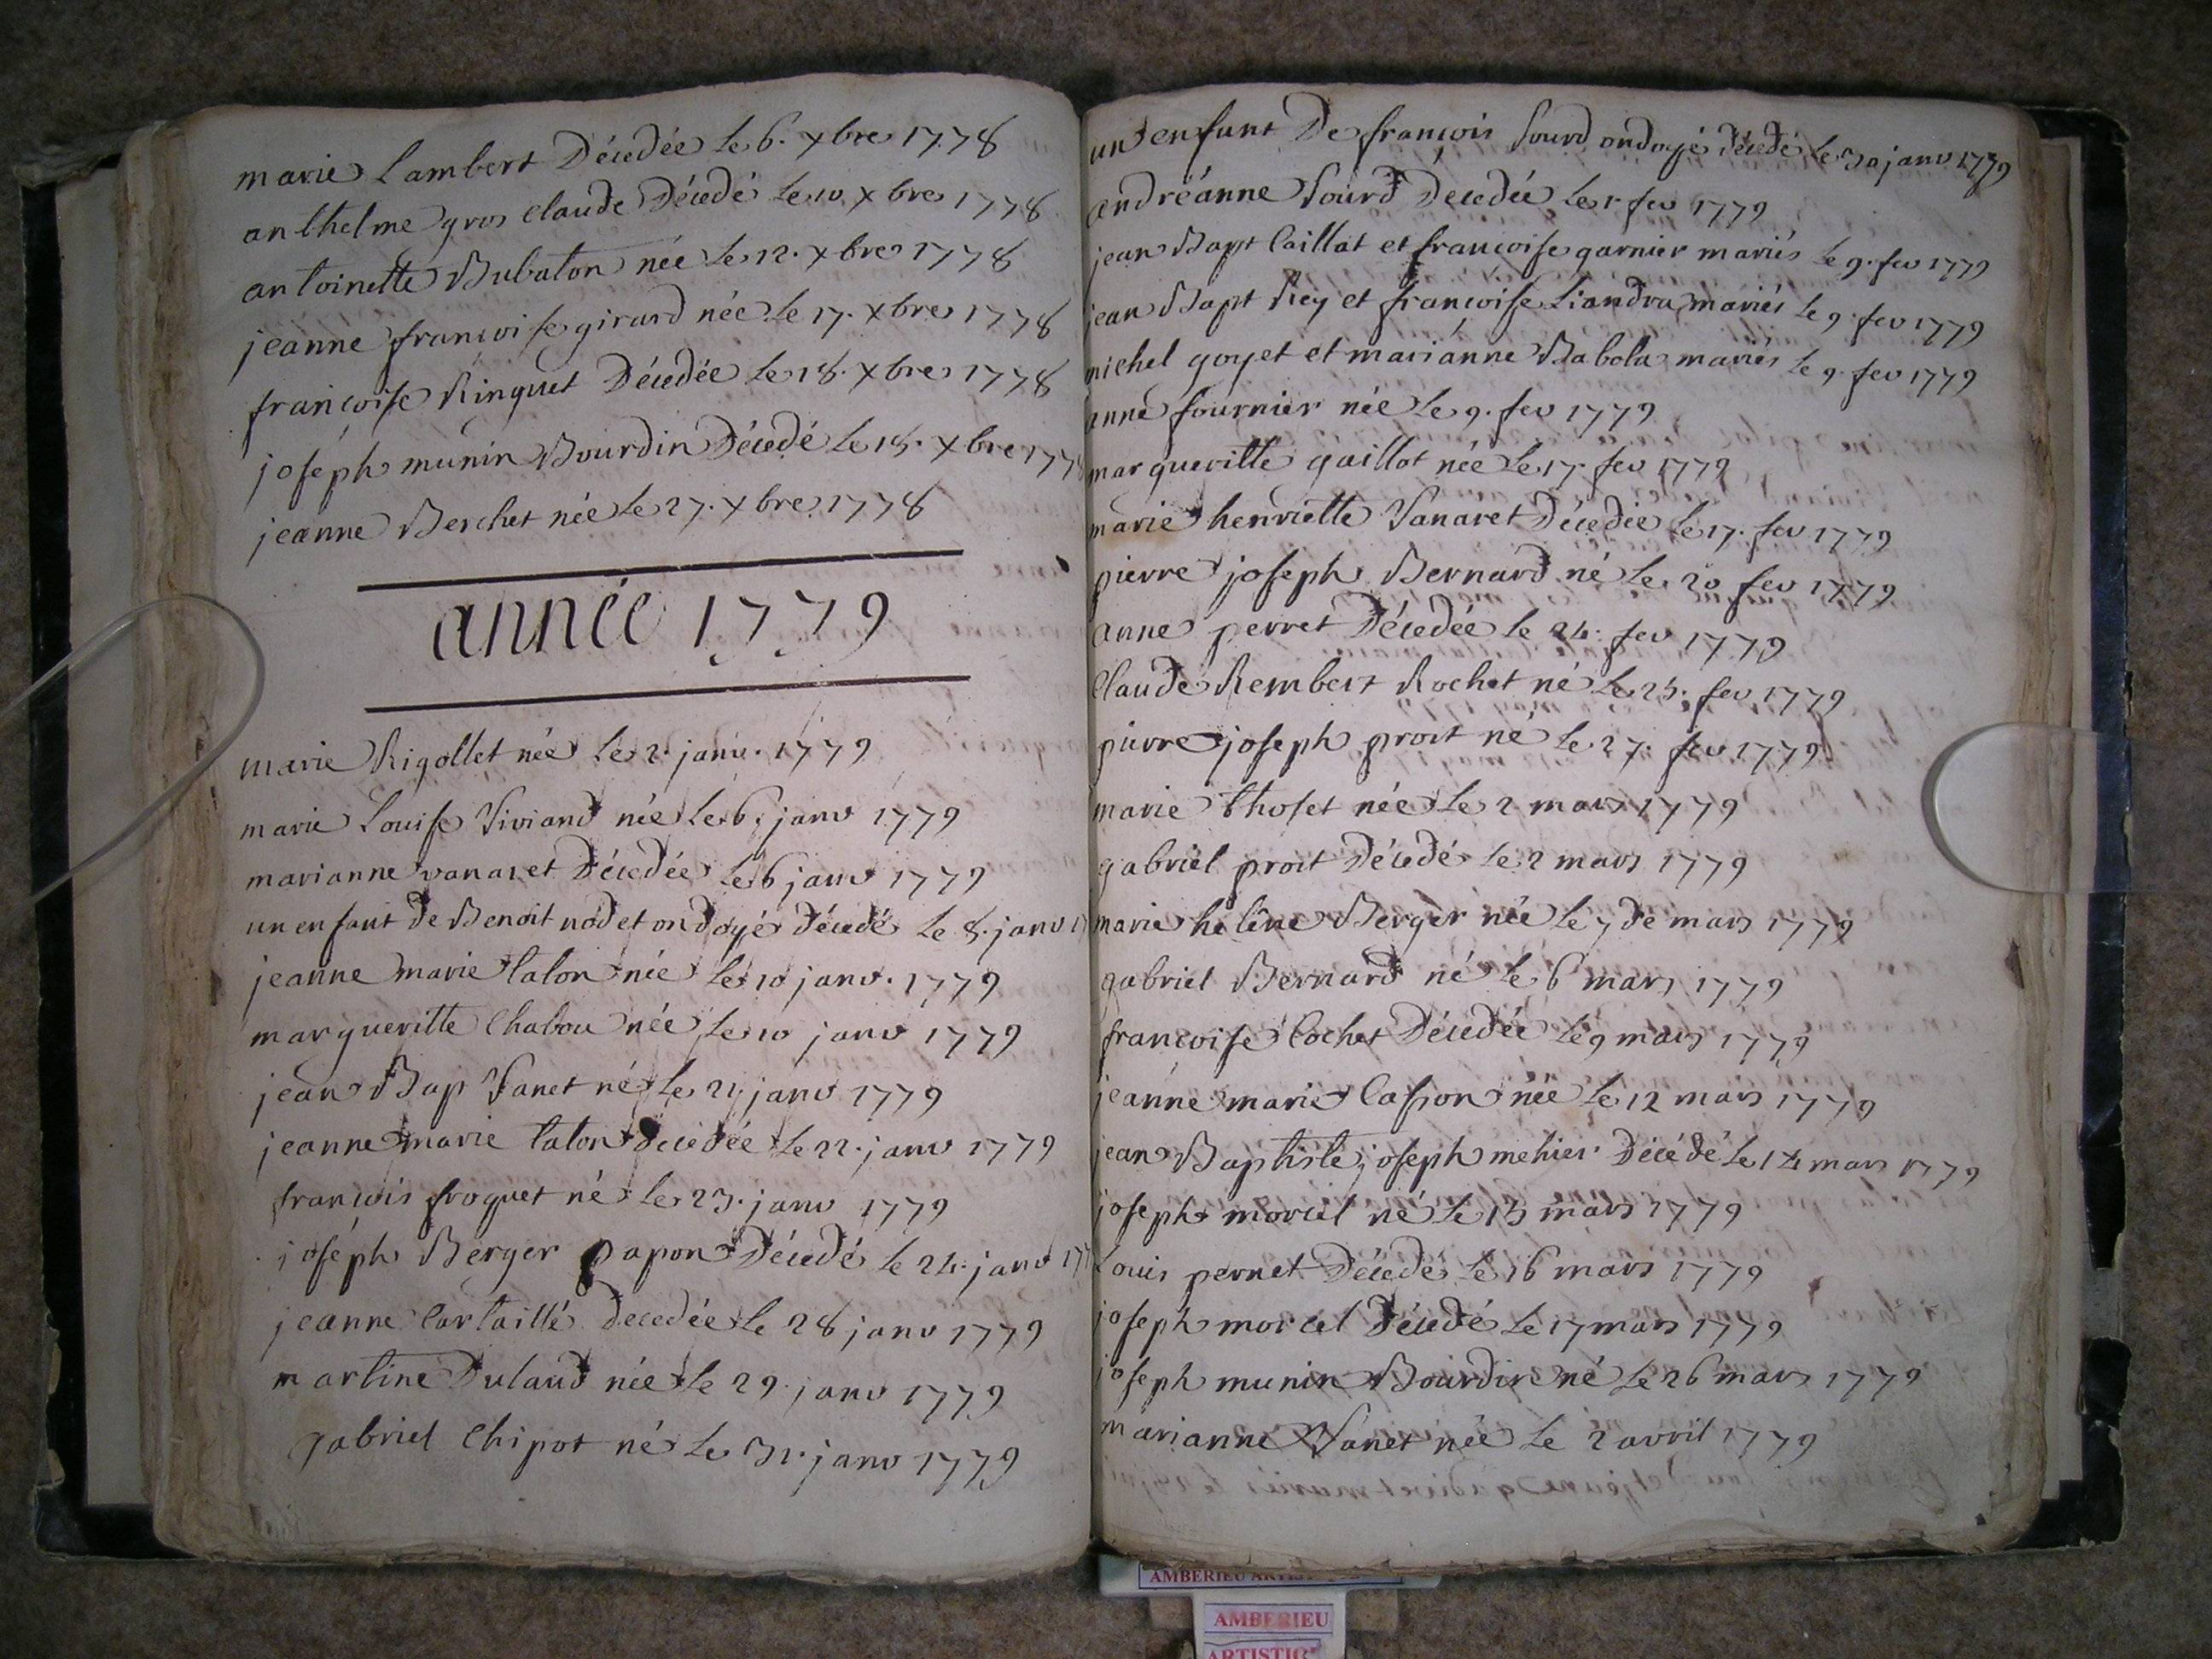 marie Lambert Décedée Le 6. xbre 1778
anthelme gros Claude Décedé Le 10 xbre 1778
antoinette Bubaton née Le 12. xbre 1778
jeanne francoise girard née Le 17. xbre 1778
francoise Ringuet Décedée Le 18. xbre 1778
joseph munin Bourdin Décedé Le 18. xbre 1778
jeanne Berchet née Le 27. xbre 1778
année 1779
marie Rigollet née Le 2. janv. 1779
marie Louise Viviand née Le 6. janv 1779
marianne vanaret Décedée Le 6 janv 1779
un enfant de Benoit nodet ondoyé décedé Le 8. janv 17
jeanne marie talon née Le 10 janv. 1779
margueritte Chabou née Le 10 janv 1779
jean Bap Vanet né Le 21 janv 1779
jeanne marie talon décedée Le 22. janv 1779
francois froquet né Le 23. janv 1779
joseph Berger papon Décedé Le 24. janv 177
jeanne Cartaillé decedée Le 28 janv 1779
martine Dulaud née Le 29. janv 1779
gabriel Chipot né Le 31. janv 1779
un enfant De francois Sourd ondoyé décedé Le 30 janv 1779
andréanne Sourd Decedée Le 1r fev 1779
jean Bapt Caillat et francoise garnier mariés Le 9. fev 1779
jean Bapt Rey et francoise Liandra mariés Le 9. fev 1779
michel goyet et marianne Babola mariés Le 9. fev 1779
anne fournier née Le 9. fev 1779
margueritte gaillot née Le 17. fev 1779
marie henriette Vanaret Décedée Le 17. fev 1779
pierre joseph Bernard né Le 20 fev 1779
anne perret Décedée Le 24. fev 1779
Claude Rembert Rochet né Le 25. fev 1779
pierre joseph prost né Le 27. fev 1779
marie thoset née Le 2 mars 1779
gabriel prost Décedé Le 2 mars 1779
marie helêne Berger née Le 7 de mars 1779
gabriel Bernard né Le 6 mars 1779
francoise Cochet Décedée Le 9 mars 1779
jeanne marie Casson née Le 12 mars 1779
jean Baptiste joseph mehier Décédé Le 14 mars 1779
joseph morcel né Le 15 mars 1779
Louis pernet Décedé Le 16 mars 1779
joseph morcel Décedé Le 17 mars 1779
joseph munin Bourdin né Le 26 mars 1779
marianne Vanet née Le 2 avril 1779
AMBERIEU
AMBERIEU
ARTISTIQ